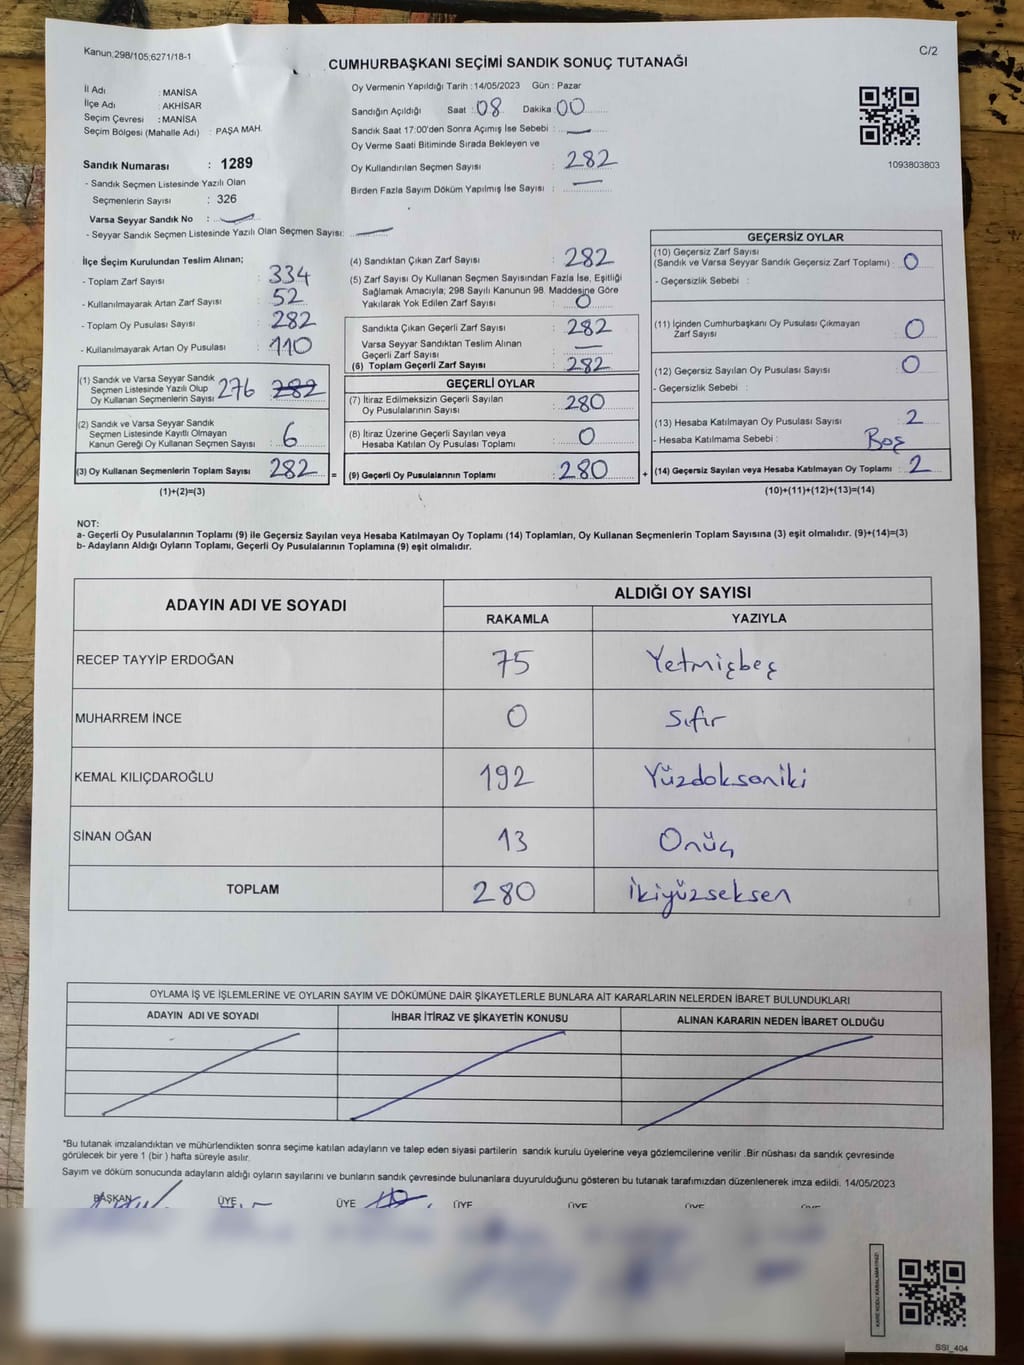 Kanun,298/105;6271/18-1
C/2
CUMHURBAŞKANI SEÇİMİ SANDIK SONUÇ TUTANAĞI
İl Adı : MANİSA
İlçe Adı : AKHİSAR
Seçim Çevresi : MANİSA
Seçim Bölgesi (Mahalle Adı) : PAŞA MAH.
Sandık Numarası : 1289
- Sandık Seçmen Listesinde Yazılı Olan
Seçmenlerin Sayısı : 326
Varsa Seyyar Sandık No :
- Seyyar Sandık Seçmen Listesinde Yazılı Olan Seçmen Sayısı:
Oy Vermenin Yapıldığı Tarih : 14/05/2023 Gün : Pazar
Sandığın Açıldığı Saat : 08 Dakika 00
Sandık Saat 17:00'den Sonra Açımış İse Sebebi :
Oy Verme Saati Bitiminde Sırada Bekleyen ve
Oy Kullandırılan Seçmen Sayısı : 282
Birden Fazla Sayım Döküm Yapılmış İse Sayısı :
1093803803
İlçe Seçim Kurulundan Teslim Alınan;
- Toplam Zarf Sayısı : 334
- Kullanılmayarak Artan Zarf Sayısı : 52
- Toplam Oy Pusulası Sayısı : 282
- Kullanılmayarak Artan Oy Pusulası : 110
(1) Sandık ve Varsa Seyyar Sandık
Seçmen Listesinde Yazılı Olup
Oy Kullanan Seçmenlerin Sayısı 276 282
(2) Sandık ve Varsa Seyyar Sandık
Seçmen Listesinde Kayıtlı Olmayan
Kanun Gereği Oy Kullanan Seçmen Sayısı : 6
(3) Oy Kullanan Seçmenlerin Toplam Sayısı 282 =
(1)+(2)=(3)
(4) Sandıktan Çıkan Zarf Sayısı : 282
(5) Zarf Sayısı Oy Kullanan Seçmen Sayısından Fazla İse, Eşitliği
Sağlamak Amacıyla; 298 Sayılı Kanunun 98. Maddesine Göre
Yakılarak Yok Edilen Zarf Sayısı : 0
Sandıkta Çıkan Geçerli Zarf Sayısı : 282
Varsa Seyyar Sandıktan Teslim Alınan
Geçerli Zarf Sayısı :
(6) Toplam Geçerli Zarf Sayısı : 282
GEÇERLİ OYLAR
(7) İtiraz Edilmeksizin Geçerli Sayılan
Oy Pusulalarının Sayısı : 280
(8) İtiraz Üzerine Geçerli Sayılan veya
Hesaba Katılan Oy Pusulası Toplamı : 0
(9) Geçerli Oy Pusulalarının Toplamı : 280 +
GEÇERSİZ OYLAR
(10) Geçersiz Zarf Sayısı
(Sandık ve Varsa Seyyar Sandık Geçersiz Zarf Toplamı) : 0
- Geçersizlik Sebebi :
(11) İçinden Cumhurbaşkanı Oy Pusulası Çıkmayan
Zarf Sayısı : 0
(12) Geçersiz Sayılan Oy Pusulası Sayısı : 0
- Geçersizlik Sebebi :
(13) Hesaba Katılmayan Oy Pusulası Sayısı : 2
- Hesaba Katılmama Sebebi : Boş
(14) Geçersiz Sayılan veya Hesaba Katılmayan Oy Toplamı : 2
(10)+(11)+(12)+(13)=(14)
NOT:
a- Geçerli Oy Pusulalarının Toplamı (9) ile Geçersiz Sayılan veya Hesaba Katılmayan Oy Toplamı (14) Toplamları, Oy Kullanan Seçmenlerin Toplam Sayısına (3) eşit olmalıdır. (9)+(14)=(3)
b- Adayların Aldığı Oyların Toplamı, Geçerli Oy Pusulalarının Toplamına (9) eşit olmalıdır.
ADAYIN ADI VE SOYADI ALDIĞI OY SAYISI
RAKAMLA YAZIYLA
RECEP TAYYİP ERDOĞAN 75 Yetmişbeş
MUHARREM İNCE 0 Sıfır
KEMAL KILIÇDAROĞLU 192 Yüzdoksaniki
SİNAN OĞAN 13 Onüç
TOPLAM 280 İkiyüzseksen
OYLAMA İŞ VE İŞLEMLERİNE VE OYLARIN SAYIM VE DÖKÜMÜNE DAİR ŞİKAYETLERLE BUNLARA AİT KARARLARIN NELERDEN İBARET BULUNDUKLARI
ADAYIN ADI VE SOYADI İHBAR İTİRAZ VE ŞİKAYETİN KONUSU ALINAN KARARIN NEDEN İBARET OLDUĞU
*Bu tutanak imzalandıktan ve mühürlendikten sonra seçime katılan adayların ve talep eden siyasi partilerin sandık kurulu üyelerine veya gözlemcilerine verilir .Bir nüshası da sandık çevresinde
görülecek bir yere 1 (bir ) hafta süreyle asılır.
Sayım ve döküm sonucunda adayların aldığı oyların sayılarını ve bunların sandık çevresinde bulunanlara duyurulduğunu gösteren bu tutanak tarafımızdan düzenlenerek imza edildi. 14/05/2023
BAŞKAN ÜYE ÜYE ÜYE ÜYE ÜYE
SSI_404